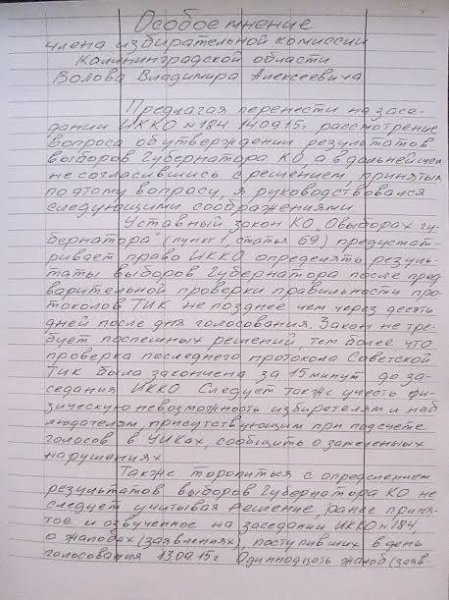 Особое мнение
члена избирательной комиссии
Калининградской области
Волова Владимира Алексеевича
Предлагая перенести на засе-
дании ИККО №184 14.09.15г. рассмотрение
вопроса об утверждении результатов
выборов Губернатора КО, а в дальнейшем
не согласившись с решением, принятым
по этому вопросу, я руководствовался
следующими соображениями.
Уставный закон КО „О выборах гу-
бернатора" (пункт 1, статья 69) предусмат-
ривает право ИККО определять резуль-
таты выборов Губернатора после пред-
варительной проверки правильности про-
токолов ТИК не позднее чем через десять
дней после дня голосования. Закон не тре-
бует поспешных решений, тем более что
проверка последнего протокола Советской
ТИК была закончена за 15 минут до за-
седания ИККО. Следует также учесть фи-
зическую невозможность избирателям и наб-
людателям, присутствующим при подсчете
голосов в УИКах, сообщить о замеченных
нарушениях.
Также торопиться с определением
результатов выборов Губернатора КО не
следует учитывая решение, ранее приня-
тое и озвученное на заседании ИККО №184,
о жалобах (заявлениях), поступивших в день
голосования 13.09.15г. Одиннадцать жалоб (заяв-